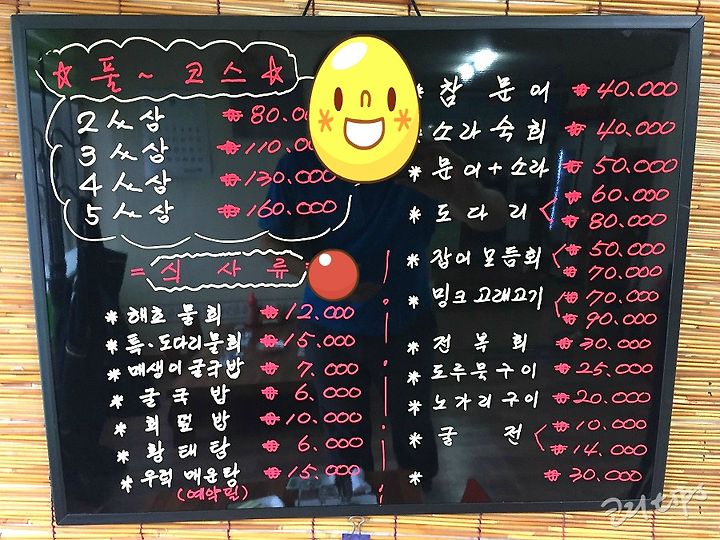 ☆ 풀~ 코스 ☆
2人상 ₩80.000
3人상 ₩110.000
4人상 ₩130.000
5人상 ₩160.000
= 식사류 =
* 해초물회 ₩12.000
* 특·도다리물회 ₩15.000
* 매생이굴국밥 ₩7.000
* 굴국밥 ₩6.000
* 회덮밥 ₩10.000
* 황태탕 ₩6.000
* 우럭매운탕 ₩15.000
(예약필)
* 참문어 ₩40.000
* 소라숙회 ₩40.000
* 문어+소라 ₩50.000
* 도다리 < ₩60.000
₩80.000
* 잡어모듬회 < ₩50.000
₩70.000
* 밍크고래고기 < ₩70.000
₩90.000
* 전복회 ₩30.000
* 도루묵구이 ₩25.000
* 노가리구이 ₩20.000
* 굴전 < ₩10.000
₩14.000
* ₩30.000